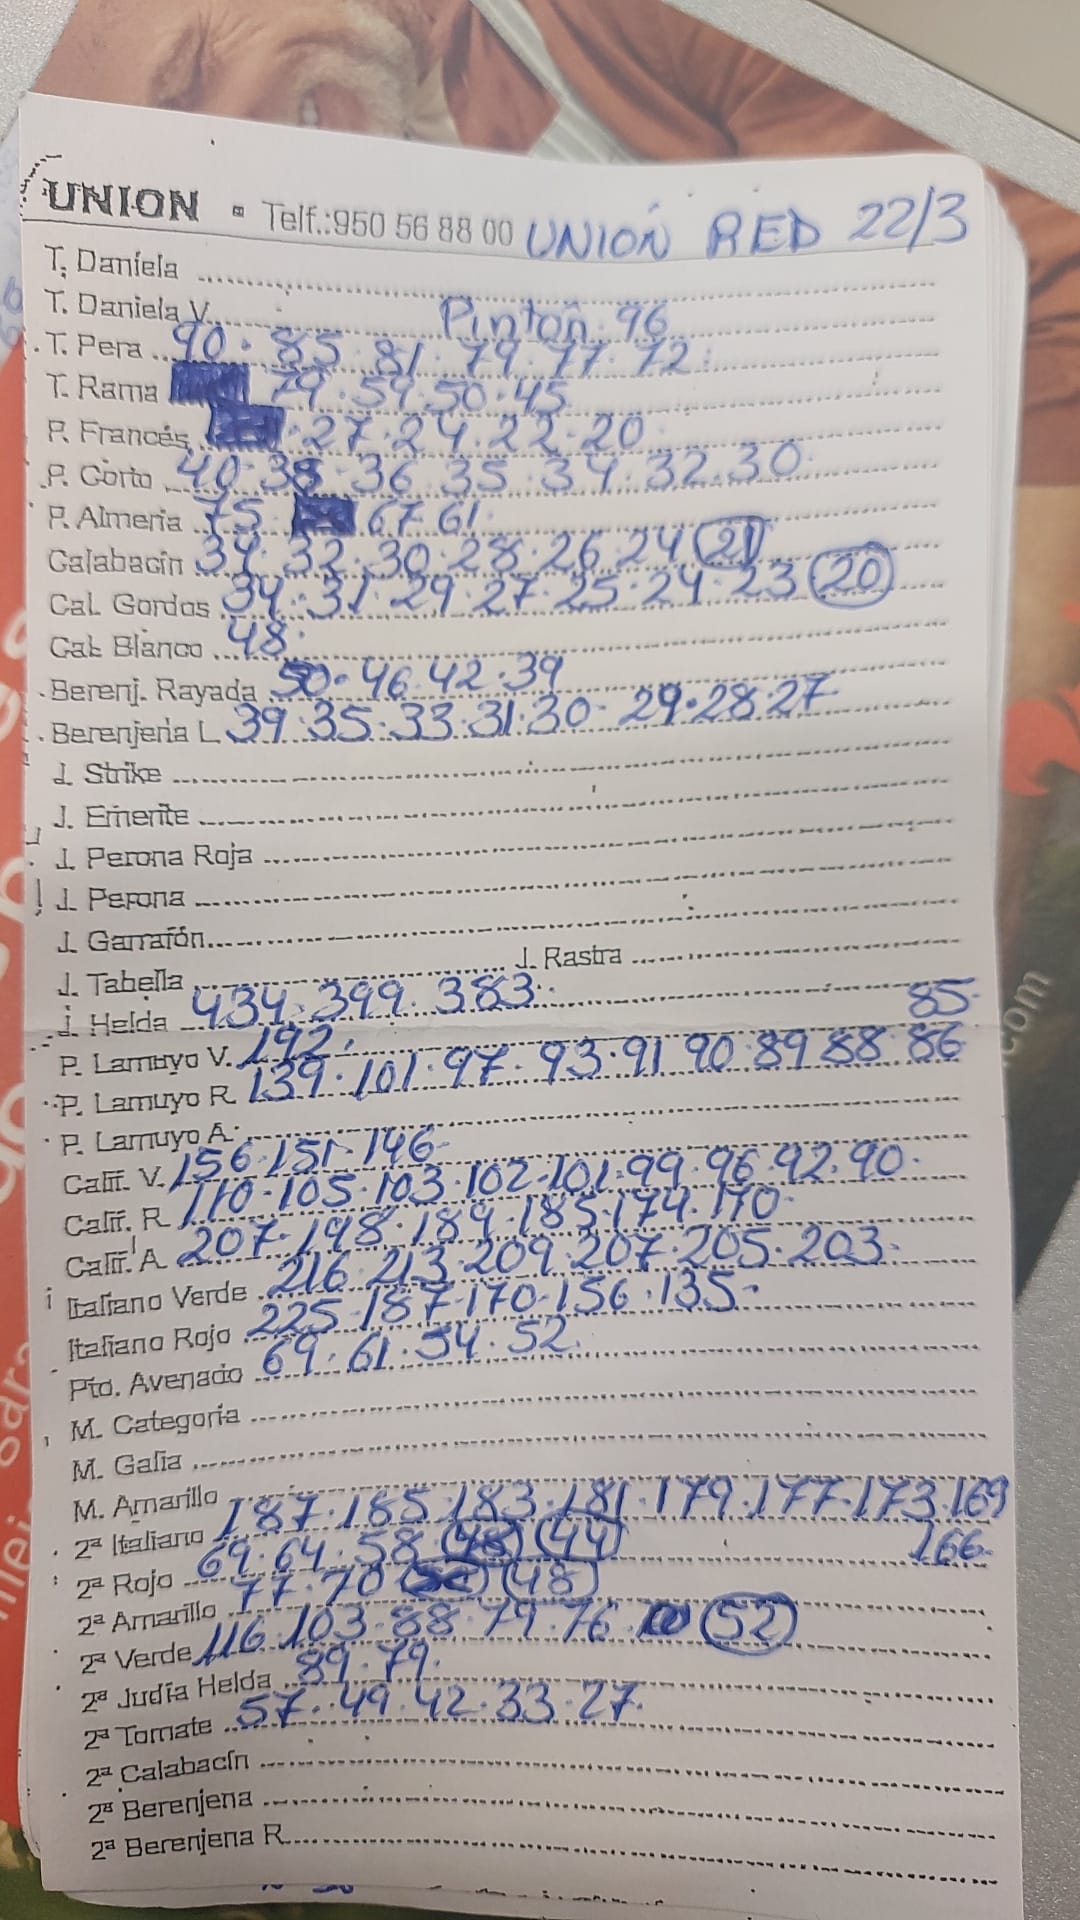 UNION - Telf.:950 56 88 00 UNION RED 22/3
T. Daniela
T. Daniela V. Pinton 96
T. Pera 90. 85. 81. 79. 77. 72.
T. Rama 79. 59. 50. 45
P. Francés 27. 24. 22. 20
P. Corto 40. 38. 36. 35. 34. 32. 30.
P. Almeria 75. 67. 61.
Calabacín 34. 32. 30. 28. 26. 24 21
Cal. Gordos 34. 31. 29. 27. 25. 24. 23 20
Cal. Blanco 48.
Berenj. Rayada 50. 46. 42. 39
Berenjena L. 39. 35. 33. 31. 30. 29. 28. 27
J. Strike
J. Emerite
J. Perona Roja
J. Perona
J. Garrafón
J. Tabella J. Rastra
J. Helda 434. 399. 383. 85.
P. Lamuyo V. 192.
P. Lamuyo R. 139. 101. 97. 93. 91 90. 89 88. 86
P. Lamuyo A.
Calif. V. 156. 151. 146
Calif. R. 110. 105. 103. 102. 101. 99. 96. 92. 90.
Calif. A. 207. 198. 189. 185. 174. 170.
Italiano Verde 216. 213. 209. 207. 205. 203.
Italiano Rojo 225. 187. 170. 156. 135.
Pto. Avenado 69. 61. 54. 52.
M. Categoria
M. Galia
M. Amarillo
2ª Italiano 187. 185. 183. 181. 179. 177. 173. 169
2ª Rojo 69. 64. 58 48 44 166.
2ª Amarillo 77. 70 48
2ª Verde 116. 103. 88. 79. 76 52
2ª Judía Helda 89. 79.
2ª Tomate 57. 49. 42. 33. 27.
2ª Calabacín
2ª Berenjena
2ª Berenjena R.
.com